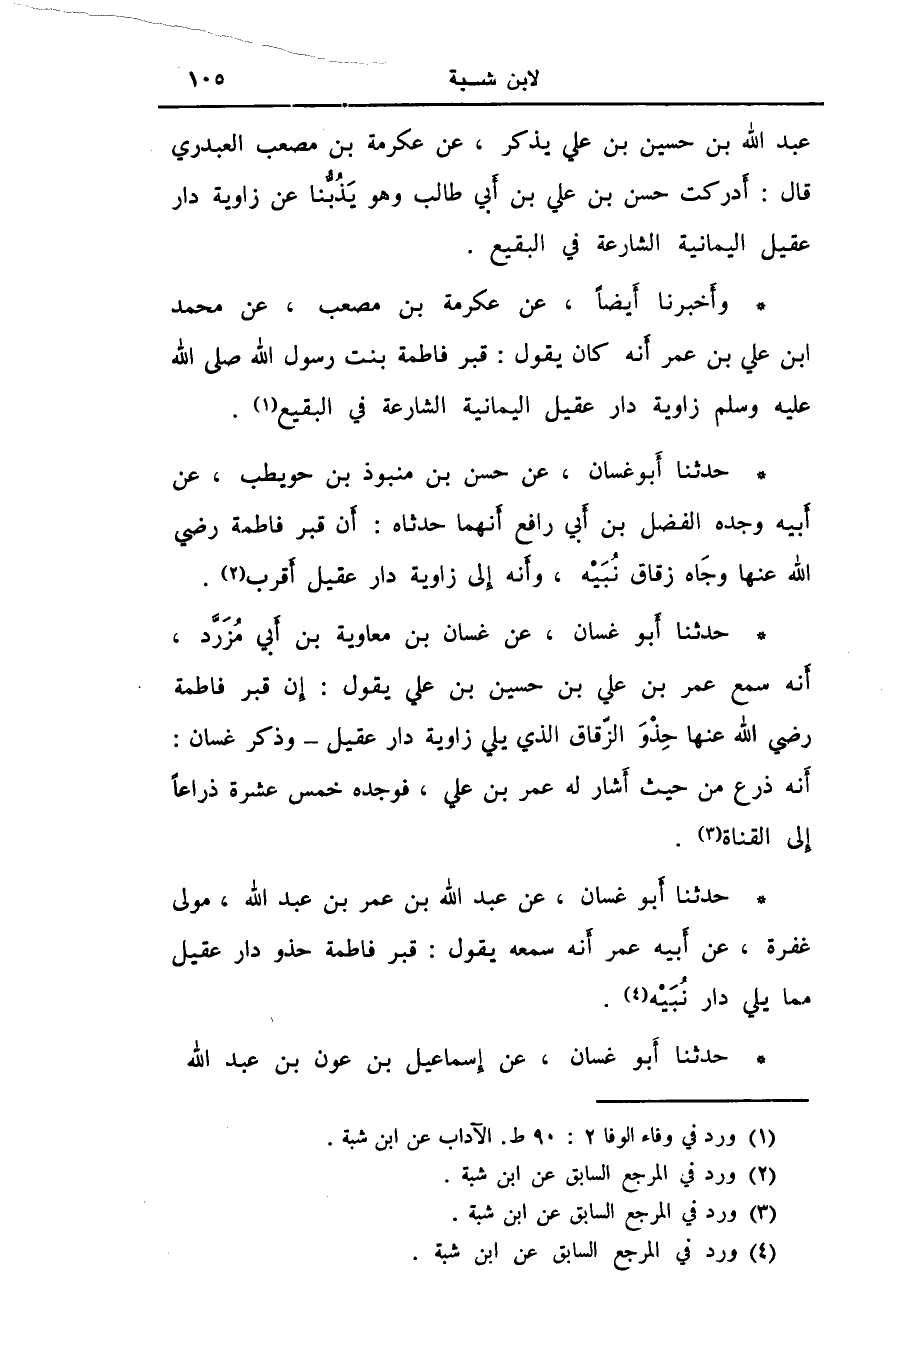 لابن شبة ١٠٥
عبد الله بن حسين بن علي يذكر ، عن عكرمة بن مصعب العبدري
قال : أدركت حسن بن علي بن أبي طالب وهو يَذُبُّنا عن زاوية دار
عقيل اليمانية الشارعة في البقيع .
* وأخبرنا أيضاً ، عن عكرمة بن مصعب ، عن محمد
ابن علي بن عمر أنه كان يقول : قبر فاطمة بنت رسول الله صلى الله
عليه وسلم زاوية دار عقيل اليمانية الشارعة في البقيع(١) .
* حدثنا أبوغسان ، عن حسن بن منبوذ بن حويطب ، عن
أبيه وجده الفضل بن أبي رافع أنهما حدثاه : أن قبر فاطمة رضي
الله عنها وجَاه زقاق نُبَيْه ، وأنه إلى زاوية دار عقيل أقرب(٢) .
* حدثنا أبو غسان ، عن غسان بن معاوية بن أبي مُزَرَّد ،
أنه سمع عمر بن علي بن حسين بن علي يقول : إن قبر فاطمة
رضي الله عنها حِذْوَ الزّقاق الذي يلي زاوية دار عقيل – وذكر غسان :
أنه ذرع من حيث أشار له عمر بن علي ، فوجده خمس عشرة ذراعاً
إلى القناة(٣) .
* حدثنا أبو غسان ، عن عبد الله بن عمر بن عبد الله ، مولى
غفرة ، عن أبيه عمر أنه سمعه يقول : قبر فاطمة حذو دار عقيل
مما يلي دار نُبَيْه(٤) .
* حدثنا أبو غسان ، عن إسماعيل بن عون بن عبد الله
(١) ورد في وفاء الوفا ٢ : ٩٠ ط. الآداب عن ابن شبة .
(٢) ورد في المرجع السابق عن ابن شبة .
(٣) ورد في المرجع السابق عن ابن شبة .
(٤) ورد في المرجع السابق عن ابن شبة .